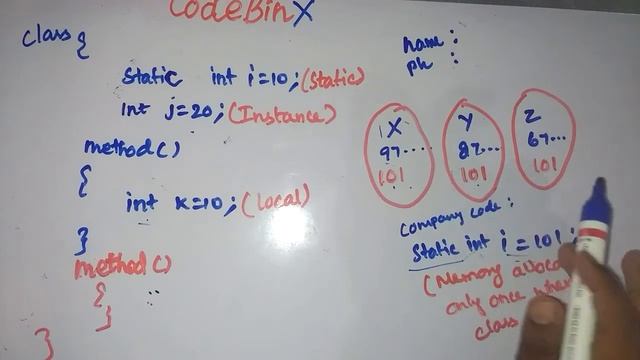 CodeBinX
class {
Static int i=10; (Static)
int j=20; (Instance)
method()
{
int k=10; (local)
}
method()
{
}
}
name :
ph :
X
97....
101
Y
87...
101
Z
67...
101
Company code :
Static int i = 101;
(Memory
only once when
class